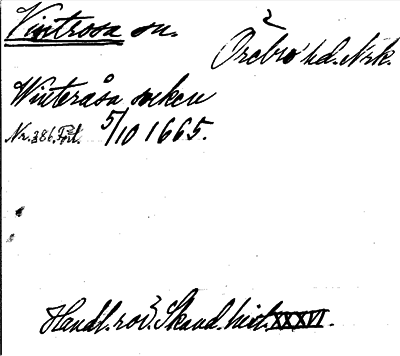 Vintrosa sn.
Örebro hd. Nrk.
Winteråsa soken
Nr. 386. Fört. 5/10 1665.
Handl. rör. Skand. hist. XXXVI.